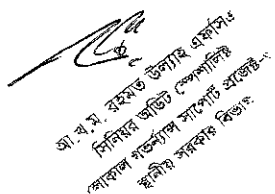 আ.খ.ম. রহমত উল্যাহ এফসিএ
সিনিয়র অডিট স্পেশালিষ্ট
লোকাল গভর্ন্যান্স সাপোর্ট প্রজেক্ট-
স্থানীয় সরকার বিভাগ